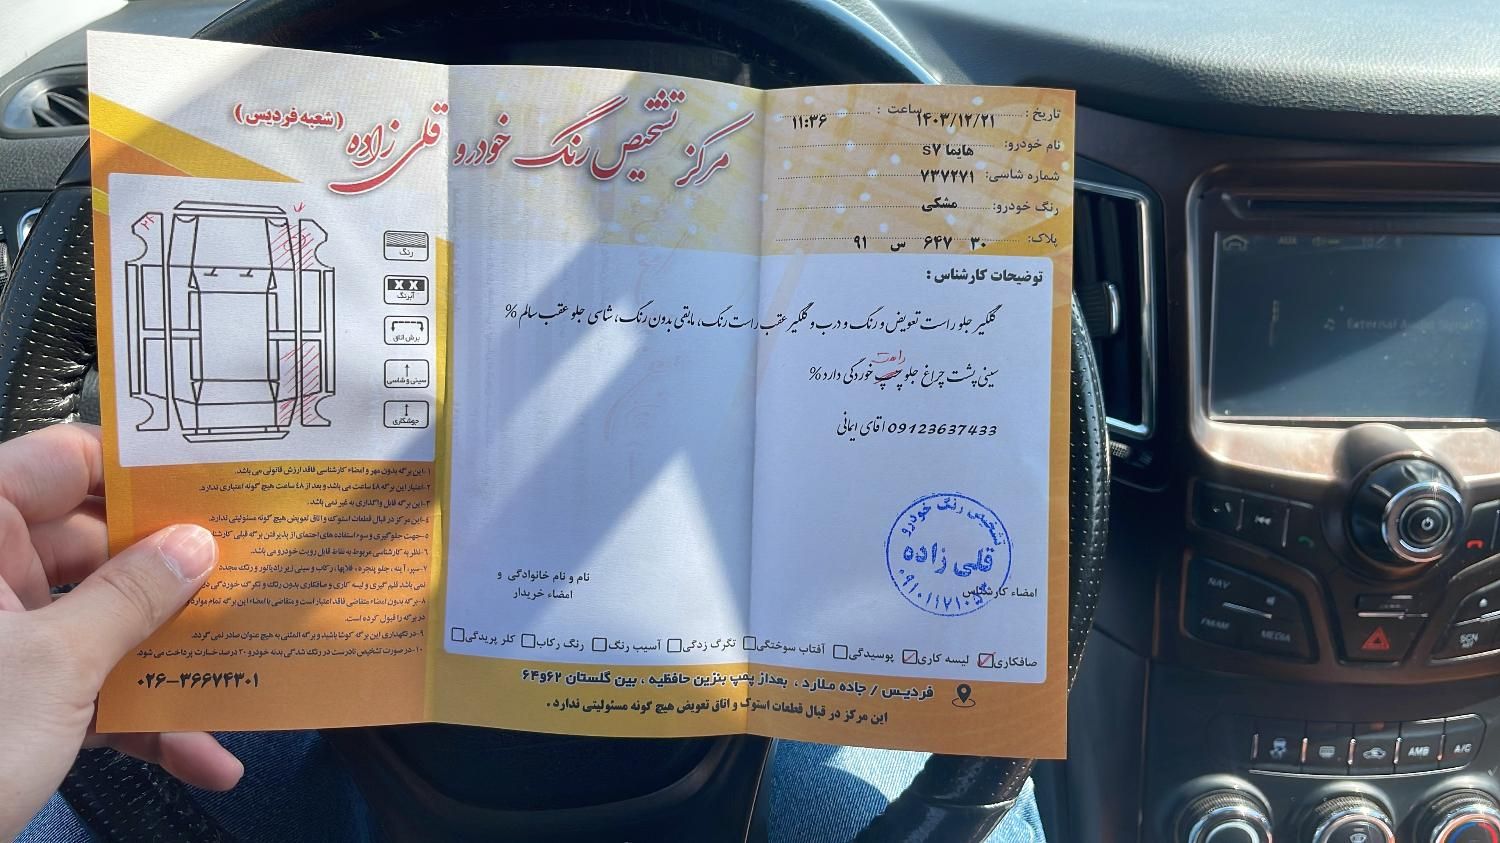 مرکز تشخیص رنگ خودرو قلی زاده (شعبه فردیس)
تاریخ : ۱۴۰۳/۱۲/۲۱ ساعت : ۱۱:۳۶
نام خودرو: هایما s۷
شماره شاسی: ۷۳۷۲۷۱
رنگ خودرو: مشکی
پلاک: ۳۰ ۶۴۷ س ۹۱
توضیحات کارشناس :
گلگیر جلو راست تعویض و رنگ و درب و گلگیر عقب راست رنگ، مابقی بدون رنگ، شاسی جلو عقب سالم %
راست
سینی پشت چراغ جلو چپ خوردگی دارد %
09123637433 اقای ایمانی
تشخیص رنگ خودرو
قلی زاده
امضاء کارشناس
نام و نام خانوادگی و
امضاء خریدار
صافکاری لیسه کاری پوسیدگی آفتاب سوختگی تگرگ زدگی آسیب رنگ رنگ رکاب کلر پریدگی
فردیس / جاده ملارد ، بعداز پمپ بنزین حافظیه ، بین گلستان ۶۲و۶۴
این مرکز در قبال قطعات استوک و اتاق تعویض هیچ گونه مسئولیتی ندارد .
رنگ
X X
آبرنگ
برش اتاق
سینی و شاسی
جوشکاری
۱-این برگه بدون مهر و امضاء کارشناسی فاقد ارزش قانونی می باشد.
۲-اعتبار این برگه ۴۸ ساعت می باشد و بعد از ۴۸ ساعت هیچ گونه اعتباری ندارد.
۳-این برگه قابل واگذاری به غیر نمی باشد.
۴-این مرکز در قبال قطعات استوک و اتاق تعویض هیچ گونه مسئولیتی ندارد.
۵-جهت جلوگیری و سوء استفاده های احتمالی از پذیرفتن برگه قبلی
۶-نظر به کارشناسی مربوط به نقاط قابل رویت خودرو می باشد.
۷-سپر، آینه ، جلو پنجره ، قلاپها ، رکاب و سینی زیر رادیاتور و رنگ مجدد
نمی باشد قلم گیری و لیسه کاری و صافکاری بدون رنگ و تگرگ خوردگی در
۸-برگه بدون امضاء متقاضی فاقد اعتبار است و متقاضی با امضاء این برگه تمام موارد
در برگه را قبول کرده است.
۹-در نگهداری این برگه کوشا باشید و برگه المثنی به هیچ عنوان صادر نمی گردد.
۱۰-در صورت تشخیص نادرست در رنگ شدگی بدنه خودرو ۲۰ درصد خسارت پرداخت می شود.
۰۲۶-۳۶۶۷۴۳۰۱
AUX
External Audio Signal
NAV
FM/AM
MEDIA
SCN
AMB
A/C